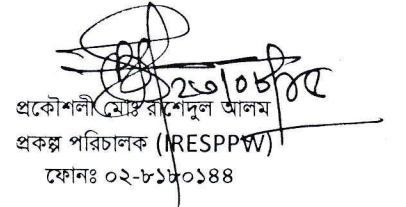 প্রকৌশলী মোঃ রাশেদুল আলম
প্রকল্প পরিচালক (IRESPPW)
ফোনঃ ০২-৮১৮০১৪৪